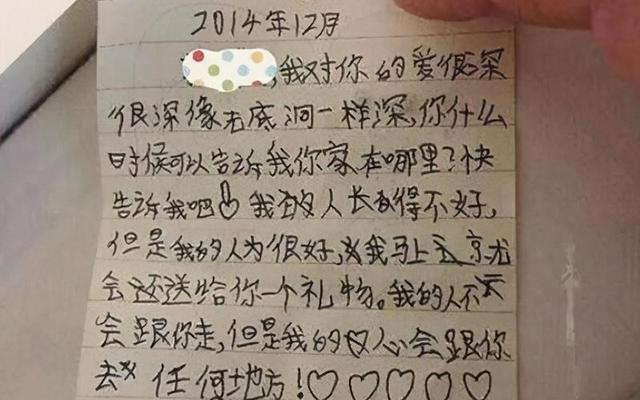 2014年12月
,我对你的爱很深
很深像无底洞一样深,你什么
时候可以告诉我你家在哪里?快
告诉我吧 我的人长有得不好,
但是我的人为很好,我马上
会还送给你一个礼物。我的人不
会跟你走,但是我的心会跟你
去任何地方!♡♡♡♡♡